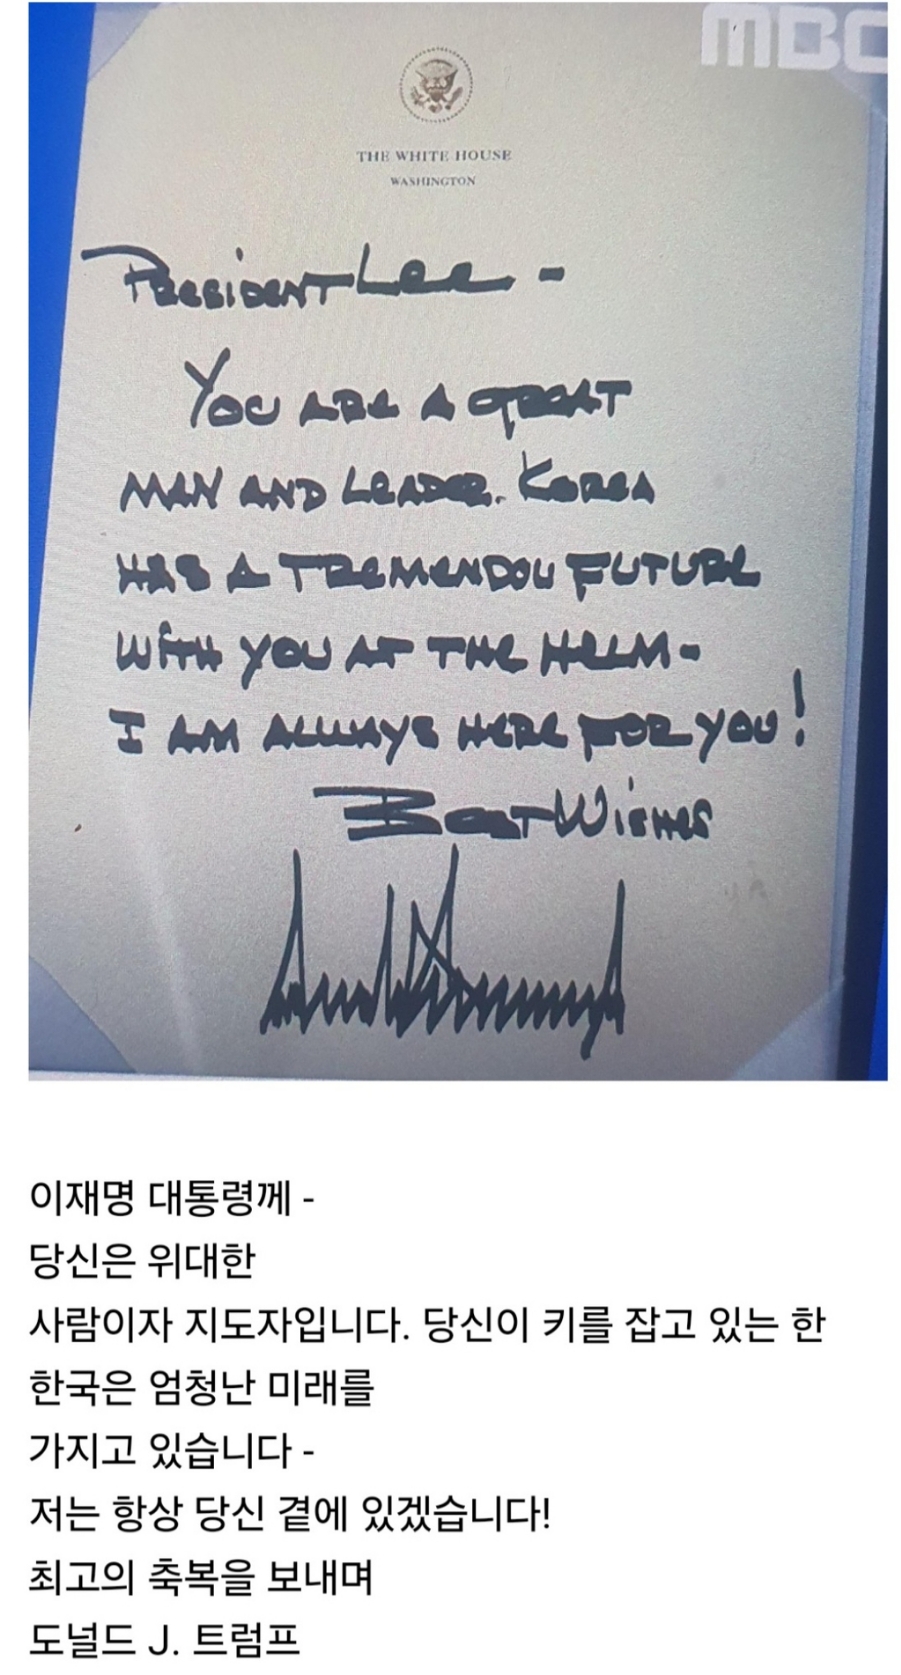 MBC
THE WHITE HOUSE
WASHINGTON
PRESIDENT LEE -
YOU ARE A GREAT
MAN AND LEADER. KOREA
HAS A TREMENDOU FUTURE
WITH YOU AT THE HELM-
I AM ALWAYS HERE FOR YOU!
BEST WISHES
이재명 대통령께 -
당신은 위대한
사람이자 지도자입니다. 당신이 키를 잡고 있는 한
한국은 엄청난 미래를
가지고 있습니다 -
저는 항상 당신 곁에 있겠습니다!
최고의 축복을 보내며
도널드 J. 트럼프